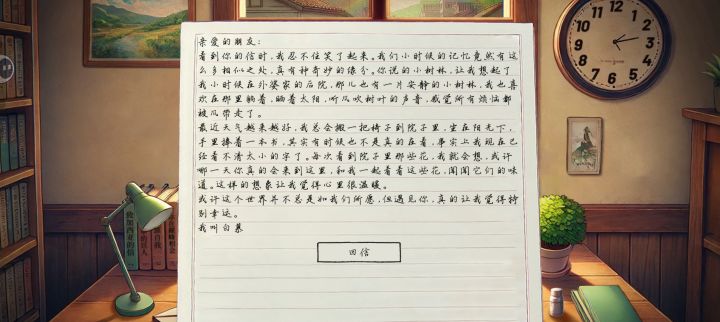 亲爱的朋友：
看到你的信时，我忍不住笑了起来。我们小时候的记忆竟然有这
么多相似之处，真有种奇妙的缘分。你说的小树林，让我想起了
我小时候在外婆家的后院，那儿也有一片安静的小树林，我也喜
欢在那里躺着，晒着太阳，听风吹树叶的声音，感觉所有烦恼都
被风带走了。
最近天气越来越好，我总会搬一把椅子到院子里，坐在阳光下，
手里捧着一本书，其实有时候也不是真的在看，事实上我现在已
经看不清太小的字了。每次看到院子里那些花，我就会想，或许
哪一天你真的会来到这里，和我一起看着这些花，闻闻它们的味
道。这样的想象让我觉得心里很温暖。
或许这个世界并不总是如我们所愿，但遇见你，真的让我觉得特
别幸运。
我叫白慕
回信
12
1
2
3
4
5
6
7
8
9
10
11